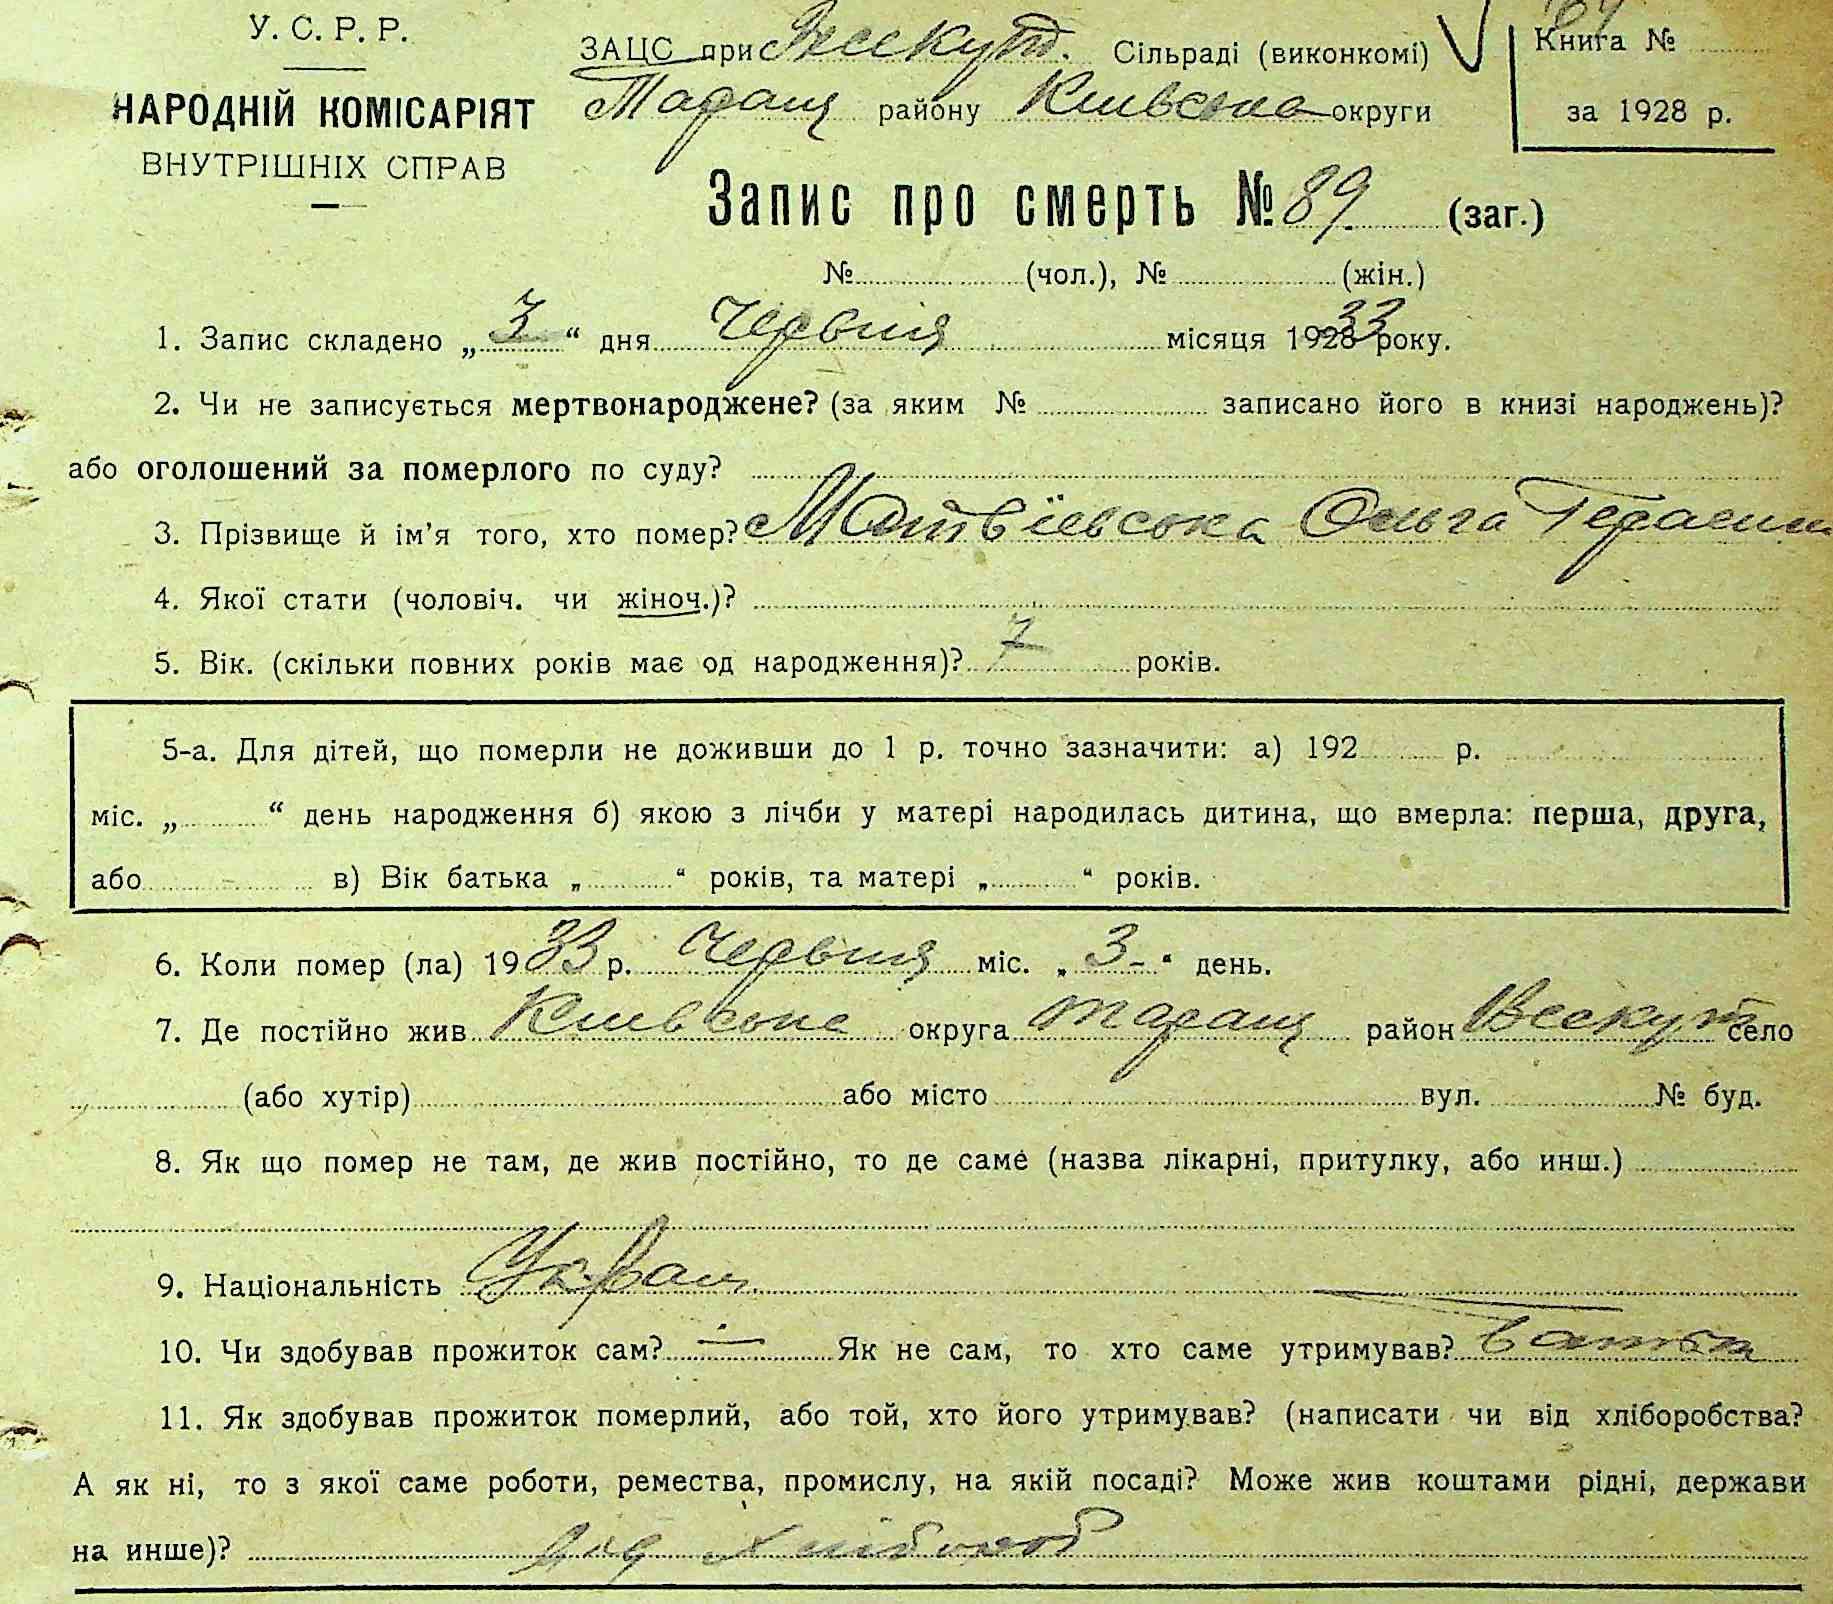 У. С. Р. Р.
НАРОДНІЙ КОМІСАРІЯТ
ВНУТРІШНІХ СПРАВ
ЗАЦС при Вескут. Сільраді (виконкомі)
Таращ району Київська округи
Книга №
за 1928 р.
Запис про смерть № 89. (заг.)
№ (чол.), № (жін.)
1. Запис складено „3“ дня Червня місяця 1933 року.
2. Чи не записується мертвонароджене? (за яким № записано його в книзі народжень)?
або оголошений за померлого по суду?
3. Прізвище й ім’я того, хто помер? Матвіевська Ольга Герасим
4. Якої стати (чоловіч. чи жіноч.)?
5. Вік. (скільки повних років має од народження)? 7 років.
5-а. Для дітей, що померли не доживши до 1 р. точно зазначити: а) 192 р.
міс. „ “ день народження б) якою з лічби у матері народилась дитина, що вмерла: перша, друга,
або в) Вік батька „ “ років, та матері „ “ років.
6. Коли помер (ла) 1933 р. Червня міс. „3-“ день.
7. Де постійно жив Київське округа Таращ район Вескут село
(або хутір) або місто вул. № буд.
8. Як що помер не там, де жив постійно, то де саме (назва лікарні, притулку, або инш.)
9. Національність Украш.
10. Чи здобував прожиток сам? — Як не сам, то хто саме утримував? батьк
11. Як здобував прожиток померлий, або той, хто його утримував? (написати чи від хліборобства?
А як ні, то з якої саме роботи, ремества, промислу, на якій посаді? Може жив коштами рідні, держави
на инше)? від хлібороб